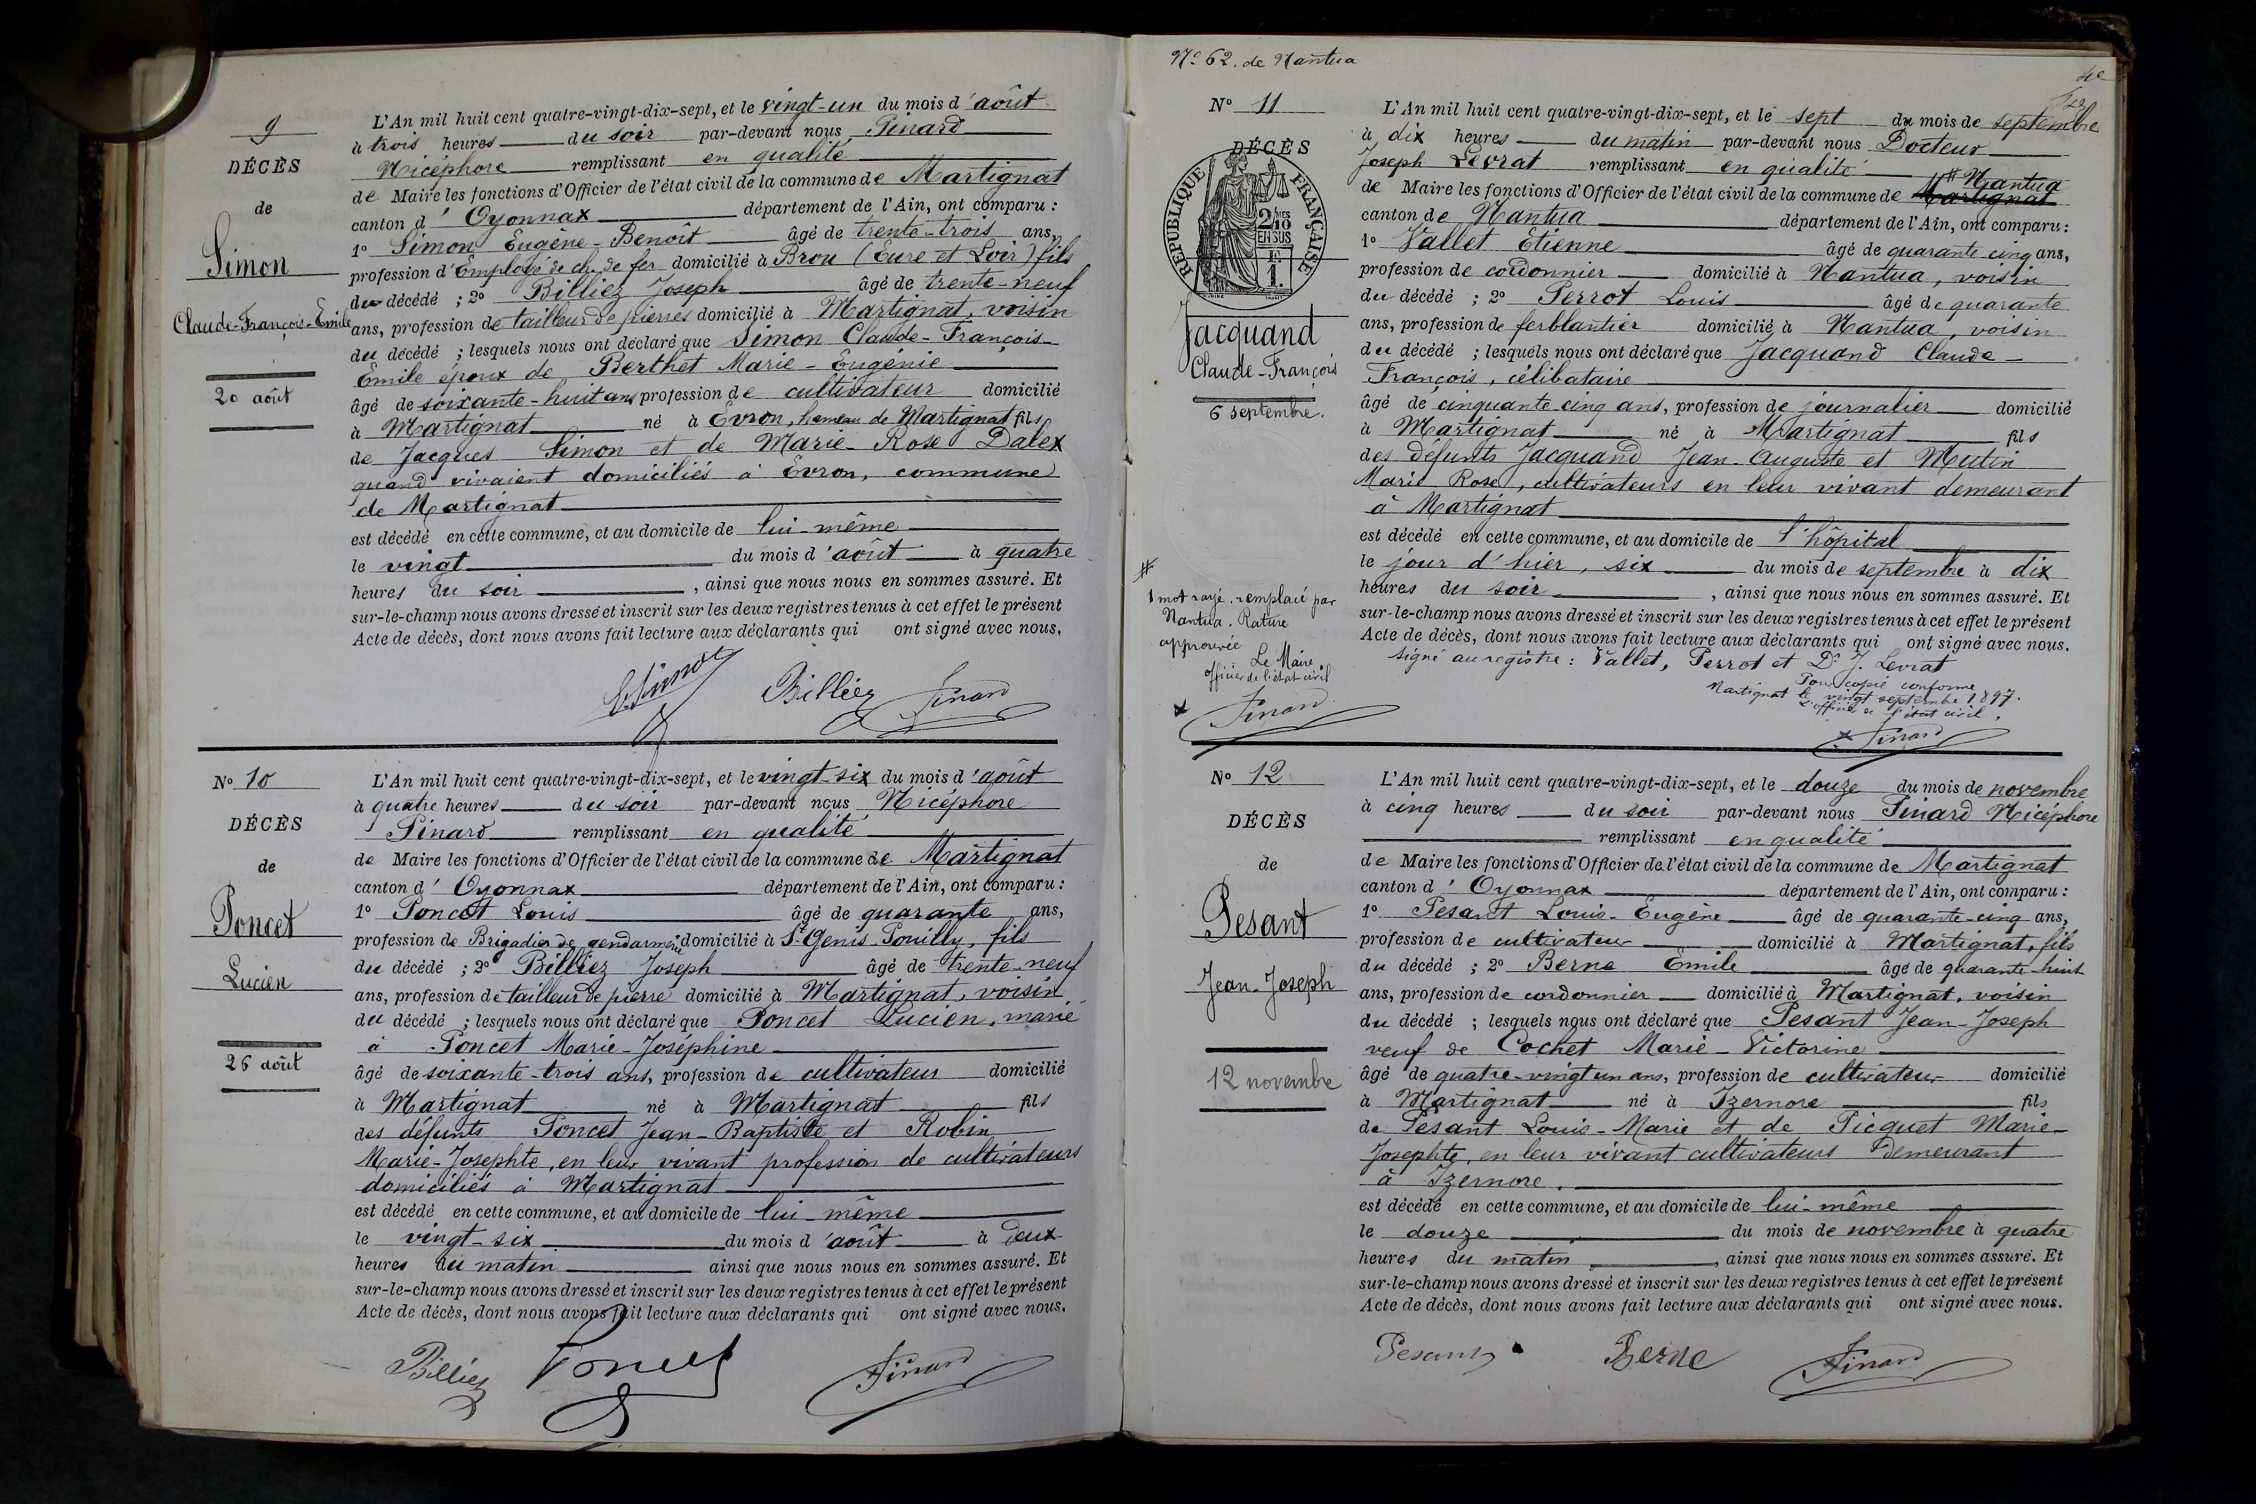 9
DÉCÈS
de
Simon
Claude-François-Emile
20 août
L'An mil huit cent quatre-vingt-dix-sept, et le vingt-un du mois d'août
à trois heures du soir par-devant nous Pinard
Nicéphore remplissant en qualité
de Maire les fonctions d'Officier de l'état civil de la commune de Martignat
canton d'Oyonnax département de l'Ain, ont comparu :
1º Simon Eugène-Benoît âgé de trente-trois ans,
profession d'Employé de ch. de fer domicilié à Brou (Eure et Loir) fils
du décédé ; 2º Billiez Joseph âgé de trente-neuf
ans, profession de tailleur de pierres domicilié à Martignat, voisin
du décédé ; lesquels nous ont déclaré que Simon Claude-François-
Emile époux de Berthet Marie-Eugénie
âgé de soixante-huit ans profession de cultivateur domicilié
à Martignat né à Evron, hameau de Martignat fils
de Jacques Simon et de Marie-Rose Dalex
quand vivaient domiciliés à Evron, commune
de Martignat
est décédé en cette commune, et au domicile de lui-même
le vingt du mois d'août à quatre
heures du soir, ainsi que nous nous en sommes assuré. Et
sur-le-champ nous avons dressé et inscrit sur les deux registres tenus à cet effet le présent
Acte de décès, dont nous avons fait lecture aux déclarants qui ont signé avec nous.
Billiez Pinard
Nº 10
DÉCÈS
de
Poncet
Lucien
26 août
L'An mil huit cent quatre-vingt-dix-sept, et le vingt-six du mois d'août
à quatre heures du soir par-devant nous Nicéphore
Pinard remplissant en qualité
de Maire les fonctions d'Officier de l'état civil de la commune de Martignat
canton d'Oyonnax département de l'Ain, ont comparu :
1º Poncet Louis âgé de quarante ans,
profession de Brigadier de gendarmerie domicilié à St Genis-Pouilly, fils
du décédé ; 2º Billiez Joseph âgé de trente-neuf
ans, profession de tailleur de pierre domicilié à Martignat, voisin
du décédé ; lesquels nous ont déclaré que Poncet Lucien, marié
à Poncet Marie-Joséphine
âgé de soixante-trois ans, profession de cultivateur domicilié
à Martignat né à Martignat fils
des défunts Poncet Jean-Baptiste et Robin
Marie-Josephte, en leur vivant profession de cultivateurs
domiciliés à Martignat
est décédé en cette commune, et au domicile de lui-même
le vingt-six du mois d'août à deux
heures du matin ainsi que nous nous en sommes assuré. Et
sur-le-champ nous avons dressé et inscrit sur les deux registres tenus à cet effet le présent
Acte de décès, dont nous avons fait lecture aux déclarants qui ont signé avec nous.
Billiez Poncet Pinard
Nº 62. de Nantua
Nº 11
DÉCÈS
RÉPUBLIQUE FRANÇAISE
2/10 EN SUS
1.
Jacquand
Claude-François
6 septembre.
#
1 mot rayé, remplacé par
Nantua. Rature
approuvée
Le Maire,
officier de l'état civil
Pinard
L'An mil huit cent quatre-vingt-dix-sept, et le sept du mois de septembre
à dix heures du matin par-devant nous Docteur
Joseph Levrat remplissant en qualité
# Nantua
de Maire les fonctions d'Officier de l'état civil de la commune de Martignat
canton de Nantua département de l'Ain, ont comparu :
1º Vallet Etienne âgé de quarante cinq ans,
profession de cordonnier domicilié à Nantua, voisin
du décédé ; 2º Perrot Louis âgé de quarante
ans, profession de ferblantier domicilié à Nantua, voisin
du décédé ; lesquels nous ont déclaré que Jacquand Claude-
François, célibataire
âgé de cinquante cinq ans, profession de journalier domicilié
à Martignat né à Martignat fils
des défunts Jacquand Jean-Auguste et Mutin
Marie Rose, cultivateurs en leur vivant demeurant
à Martignat
est décédé en cette commune, et au domicile de l'hôpital
le jour d'hier, six du mois de septembre à dix
heures du soir, ainsi que nous nous en sommes assuré. Et
sur-le-champ nous avons dressé et inscrit sur les deux registres tenus à cet effet le présent
Acte de décès, dont nous avons fait lecture aux déclarants qui ont signé avec nous.
Signé au registre : Vallet, Perrot et Dr J. Levrat
Pour copie conforme
Martignat le vingt septembre 1897.
L'officier de l'état civil,
Pinard
Nº 12
DÉCÈS
de
Pesant
Jean-Joseph
12 novembre
L'An mil huit cent quatre-vingt-dix-sept, et le douze du mois de novembre
à cinq heures du soir par-devant nous Pinard Nicéphore
remplissant en qualité
de Maire les fonctions d'Officier de l'état civil de la commune de Martignat
canton d'Oyonnax département de l'Ain, ont comparu :
1º Pesant Louis-Eugène âgé de quarante-cinq ans,
profession de cultivateur domicilié à Martignat, fils
du décédé ; 2º Berne Emile âgé de quarante-huit
ans, profession de cordonnier domicilié à Martignat, voisin
du décédé ; lesquels nous ont déclaré que Pesant Jean-Joseph
veuf de Cochet Marie-Victorine
âgé de quatre-vingt un ans, profession de cultivateur domicilié
à Martignat né à Izernore fils
de Pesant Louis-Marie et de Picquet Marie-
Josephte, en leur vivant cultivateurs demeurant
à Izernore.
est décédé en cette commune, et au domicile de lui-même
le douze du mois de novembre à quatre
heures du matin, ainsi que nous nous en sommes assuré. Et
sur-le-champ nous avons dressé et inscrit sur les deux registres tenus à cet effet le présent
Acte de décès, dont nous avons fait lecture aux déclarants qui ont signé avec nous.
Pesant Berne Pinard